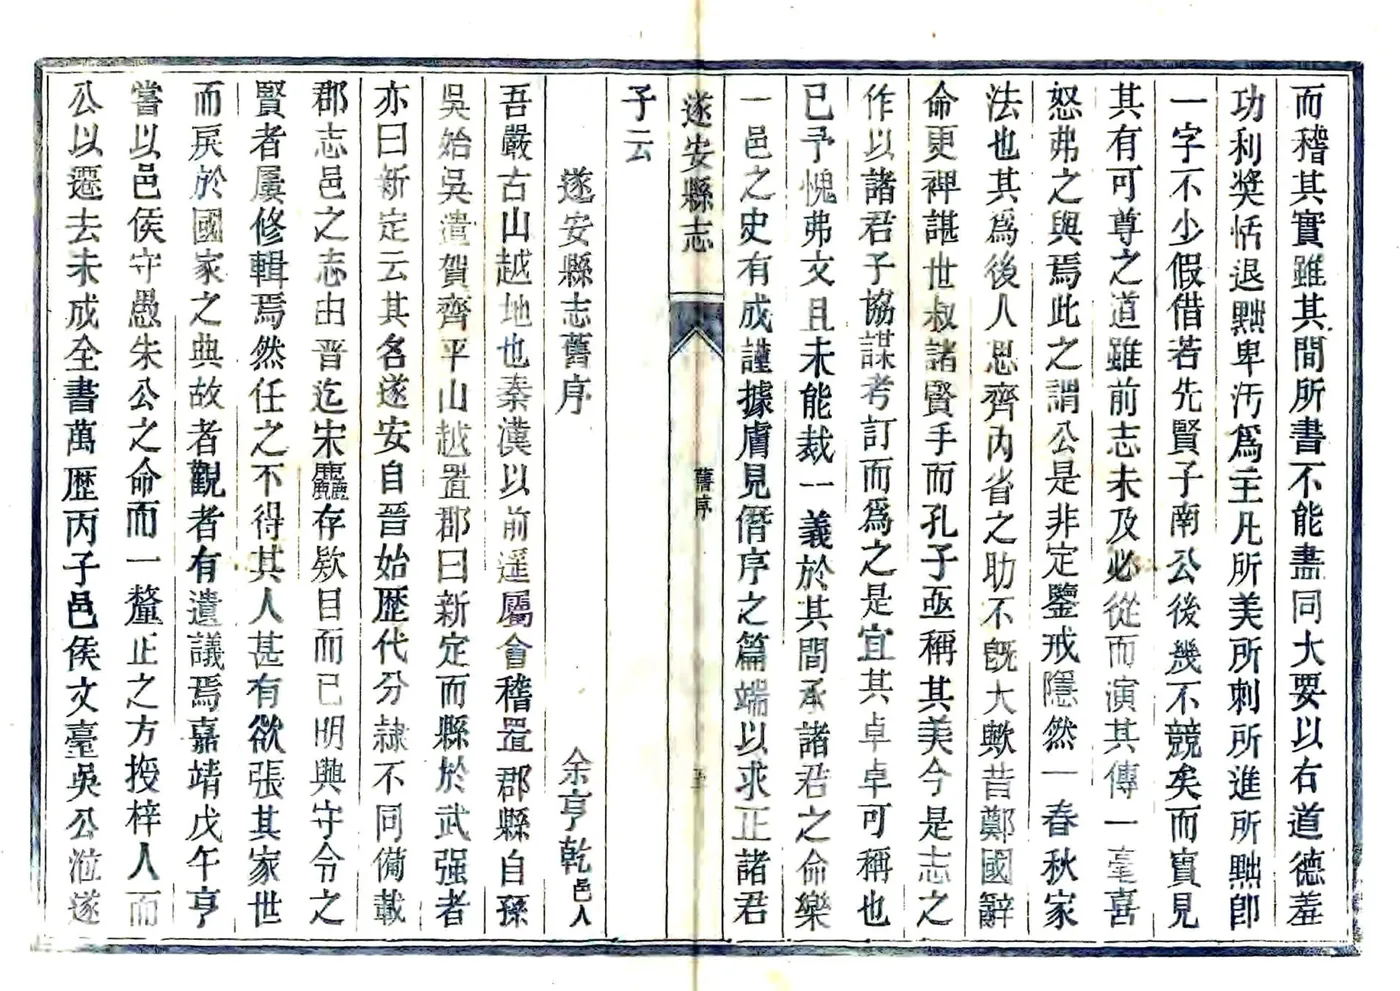 而稽其實雖其間所書不能盡同大要以右道德羞
功利奨恬退黜卑汚爲主凡所美所刺所進所黜卽
一字不少假借若先賢子南公後幾不競矣而實見
其有可尊之道雖前志未及必從而演其傳一毫喜
怒弗之與焉此之謂公是非定鑒戒隱然一春秋家
法也其爲後人思齊內省之助不旣大歟昔鄭國辭
命更裨諶世叔諸賢手而孔子亟稱其美今是志之
作以諸君子協謀考訂而爲之是宜其卓卓可稱也
已予愧弗文且未能裁一義於其間承諸君之命樂
一邑之史有成謹據膚見僭序之篇端以求正諸君
遂安縣志
舊序
五
子云
遂安縣志舊序
余亨乾邑人
吾嚴古山越地也秦漢以前遥屬會稽置郡縣自孫
吳始吳遣賀齊平山越置郡曰新定而縣於武强者
亦曰新定云其名遂安自晉始歷代分隷不同備載
郡志邑之志由晋迄宋麤存欵目而已明興守令之
賢者屢修輯焉然任之不得其人甚有欲張其家世
而戾於國家之典故者觀者有遺議焉嘉靖戊午亨
嘗以邑侯守愚朱公之命而一釐正之方授梓人而
公以遷去未成全書萬歷丙子邑侯文臺吳公涖遂